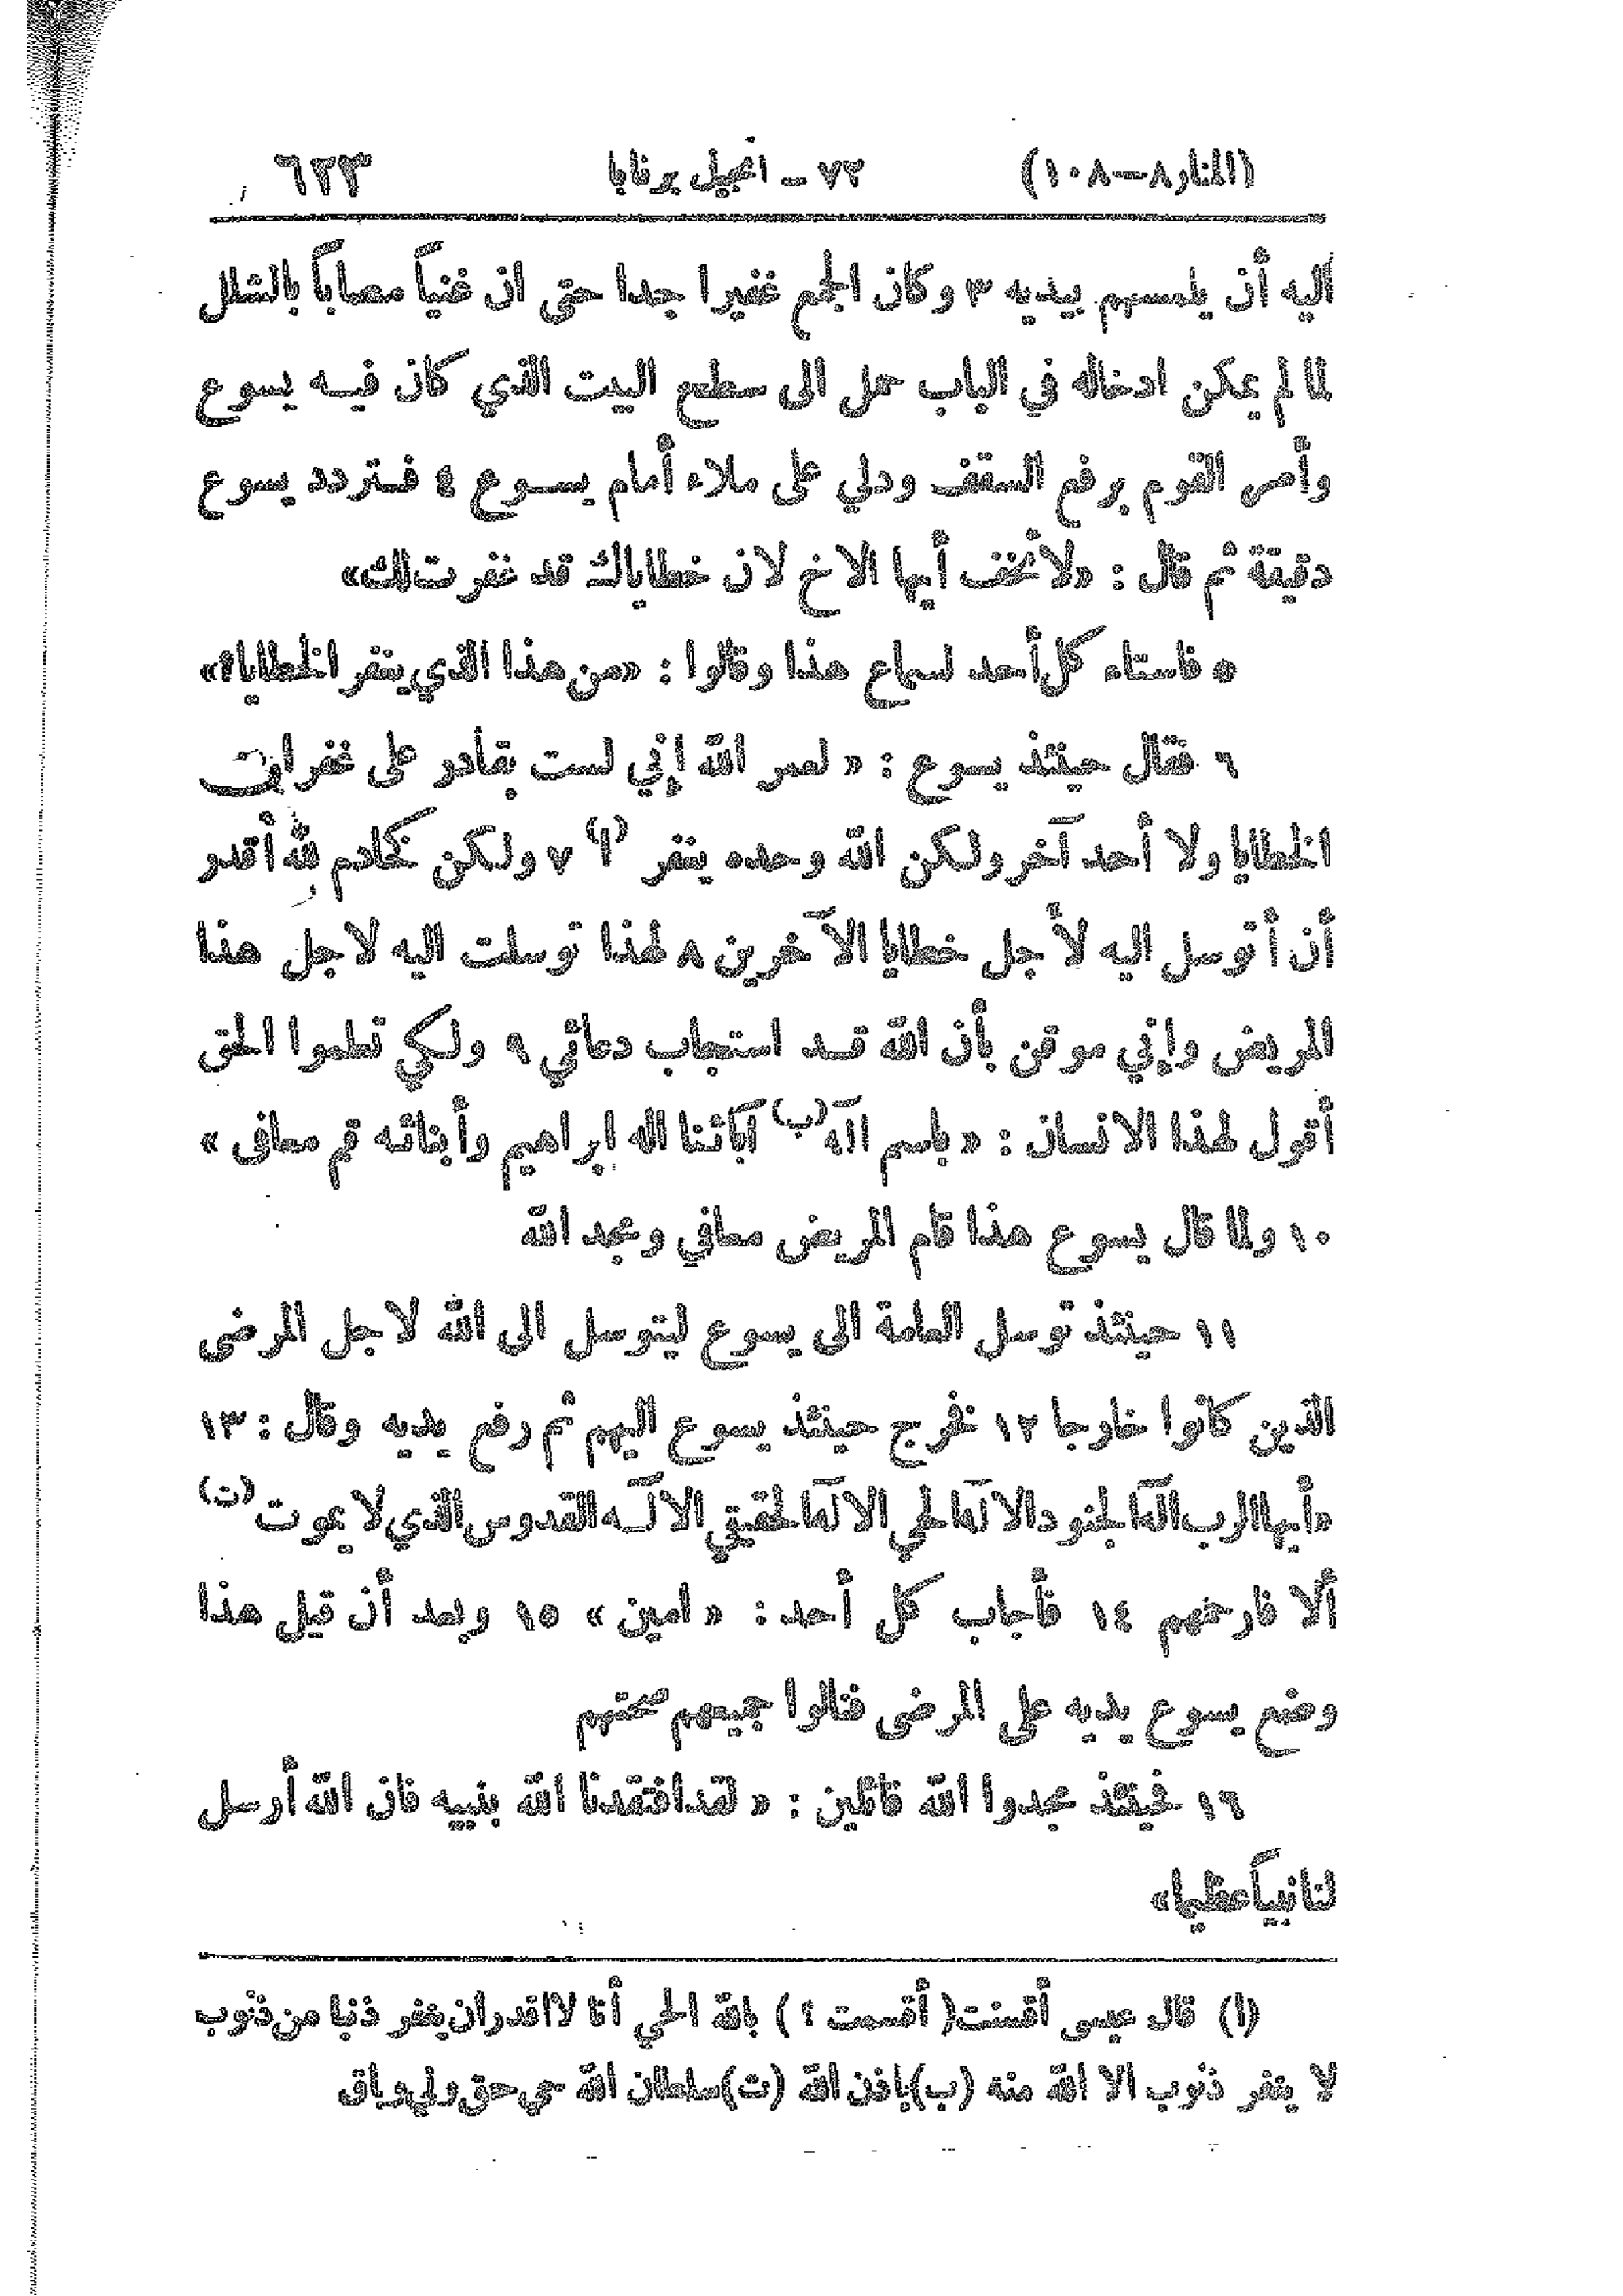 (المنار ٨ — ١٠٨) ٧٢ — انجيل برنابا ٦٢٣
اليه أن يلمسهم بيديه ٣ وكان الجمع غفيرا جدا حتى ان غنياً مصاباً بالشلل
لما لم يمكن ادخاله في الباب حمل الى سطح البيت الذي كان فيه يسوع
وأمر القوم برفع السقف ودلي على ملاء أمام يسوع ٤ فتردد يسوع
دقيقة ثم قال : «لا تخف أيها الاخ لان خطاياك قد غفرت لك»
٥ فاستاء كل أحد لسماع هذا وقالوا : «من هذا الذي يغفر الخطايا؟»
٦ فقال حينئذ يسوع : « لعمر الله إني لست بقادر على غفران
الخطايا ولا أحد آخر ولكن الله وحده يغفر (ا) ٧ ولكن كخادم لله أقدر
أن أتوسل اليه لأجل خطايا الآخرين ٨ لهذا توسلت اليه لاجل هذا
المريض وإني موقن بأن الله قد استجاب دعائي ٩ ولكي تعلموا الحق
أقول لهذا الانسان : « باسم اله (ب) آبائنا اله ابراهيم وأبنائه قم معافى »
١٠ ولما قال يسوع هذا قام المريض معافى ومجد الله
١١ حينئذ توسل العامة الى يسوع ليتوسل الى الله لاجل المرضى
الذين كانوا خارجا ١٢ فخرج حينئذ يسوع اليهم ثم رفع يديه وقال : ١٣
«أيها الرب اله الجنود الاله الحي الاله الحقيقي الاله القدوس الذي لا يموت (ت)
ألا فارحمهم ١٤ فأجاب كل أحد : « امين » ١٥ وبعد أن قيل هذا
وضع يسوع يديه على المرضى فنالوا جميعهم صحتهم
١٦ فحينئذ مجدوا الله قائلين : « لقد افتقدنا الله بنبيه فان الله أرسل
لنا نبياً عظيما»
(ا) قال عيسى أقسنت (أقسمت ؟) بالله الحي أنا لا اقدر ان يغفر ذنبا من ذنوب
لا يغفر ذنوب الا الله منه (ب) باذن الله (ت) سلطان الله حي حق ولي وباق